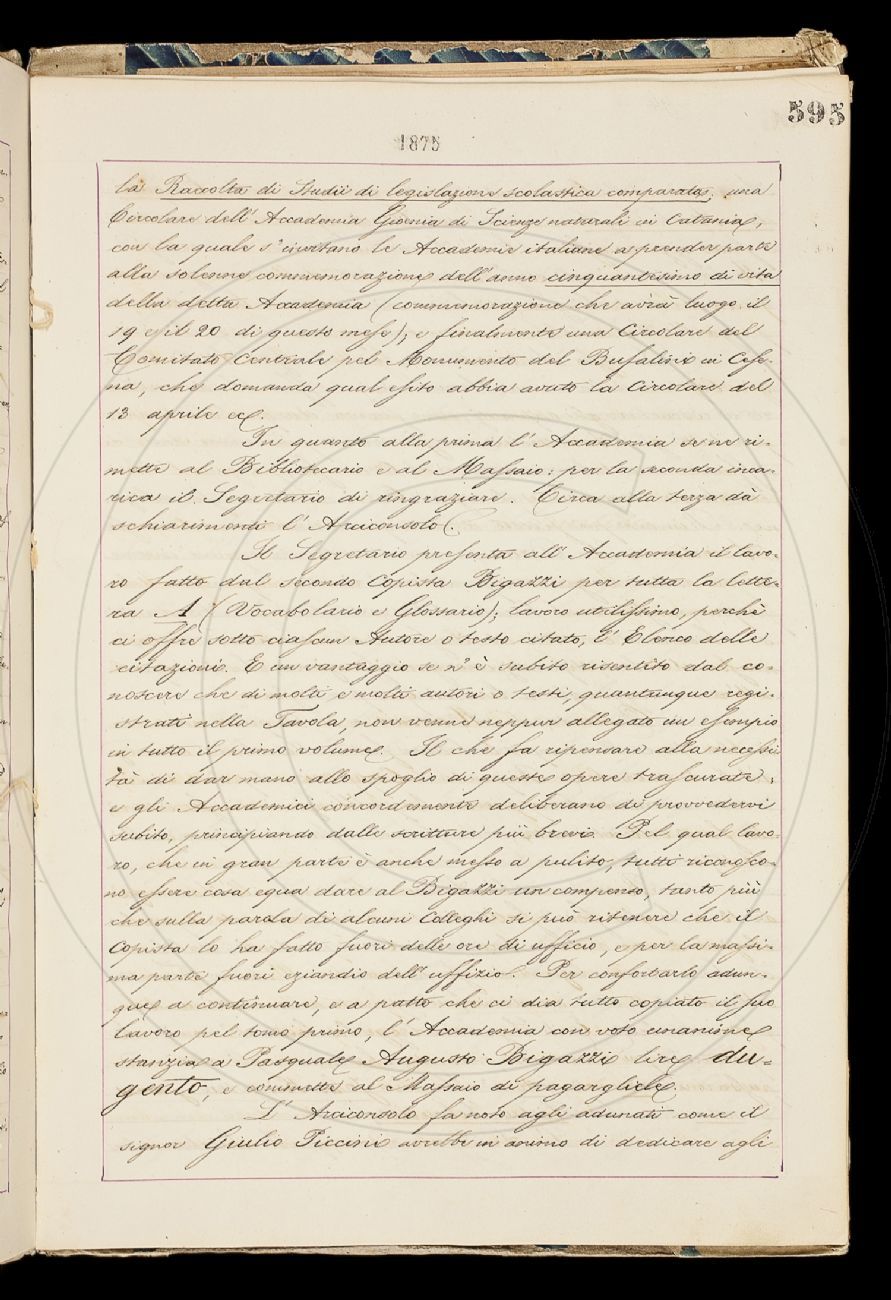 595
1875
la Raccolta di Studii di legislazione scolastica comparata; una
Circolare dell'Accademia Gioenia di Scienze naturali in Catania,
con la quale s'invitano le Accademie italiane a prender parte
alla solenne commemorazione dell'anno cinquantesimo di vita
della detta Accademia (commemorazione che avrà luogo il
19 e il 20 di questo mese); e finalmente una Circolare del
Comitato Centrale pel Monumento del Bufalini in Cese-
na, che domanda qual esito abbia avuto la Circolare del
13 aprile ec.
In quanto alla prima l'Accademia se ne ri-
mette al Bibliotecario e al Massaio: per la seconda inca-
rica il Segretario di ringraziare. Circa alla terza dà
schiarimenti l'Arciconsolo.
Il Segretario presenta all'Accademia il lavo-
ro fatto dal secondo Copista Bigazzi per tutta la lette-
ra A (Vocabolario e Glossario); lavoro utilissimo, perchè
ci offre sotto ciascun Autore o testo citato, l'Elenco delle
citazioni. E un vantaggio se n'è subito risentito dal co-
noscere che di molti e molti autori o testi, quantunque regi-
strati nella Tavola, non venne neppur allegato un esempio
in tutto il primo volume. Il che fa ripensare alla necessi-
tà di dar mano allo spoglio di queste opere trascurate;
e gli Accademici concordemente deliberano di provvedervi
subito, principiando dalle scritture più brevi. Pel qual lavo-
ro, che in gran parte è anche messo a pulito, tutti riconosco-
no essere cosa equa dare al Bigazzi un compenso, tanto più
che sulla parola di alcuni Colleghi si può ritenere che il
Copista lo ha fatto fuori delle ore di ufficio, e per la massi-
ma parte fuori eziandio dell'uffizio. Per confortarlo adun-
que a continuare, e a patto che ci dia tutto copiato il suo
lavoro pel tomo primo, l'Accademia con voto unanime
stanzia a Pasquale Augusto Bigazzi lire du-
gento, e commette al Massaio di pagargliele.
L'Arciconsolo fa noto agli adunati come il
signor Giulio Piccini avrebbe in animo di dedicare agli